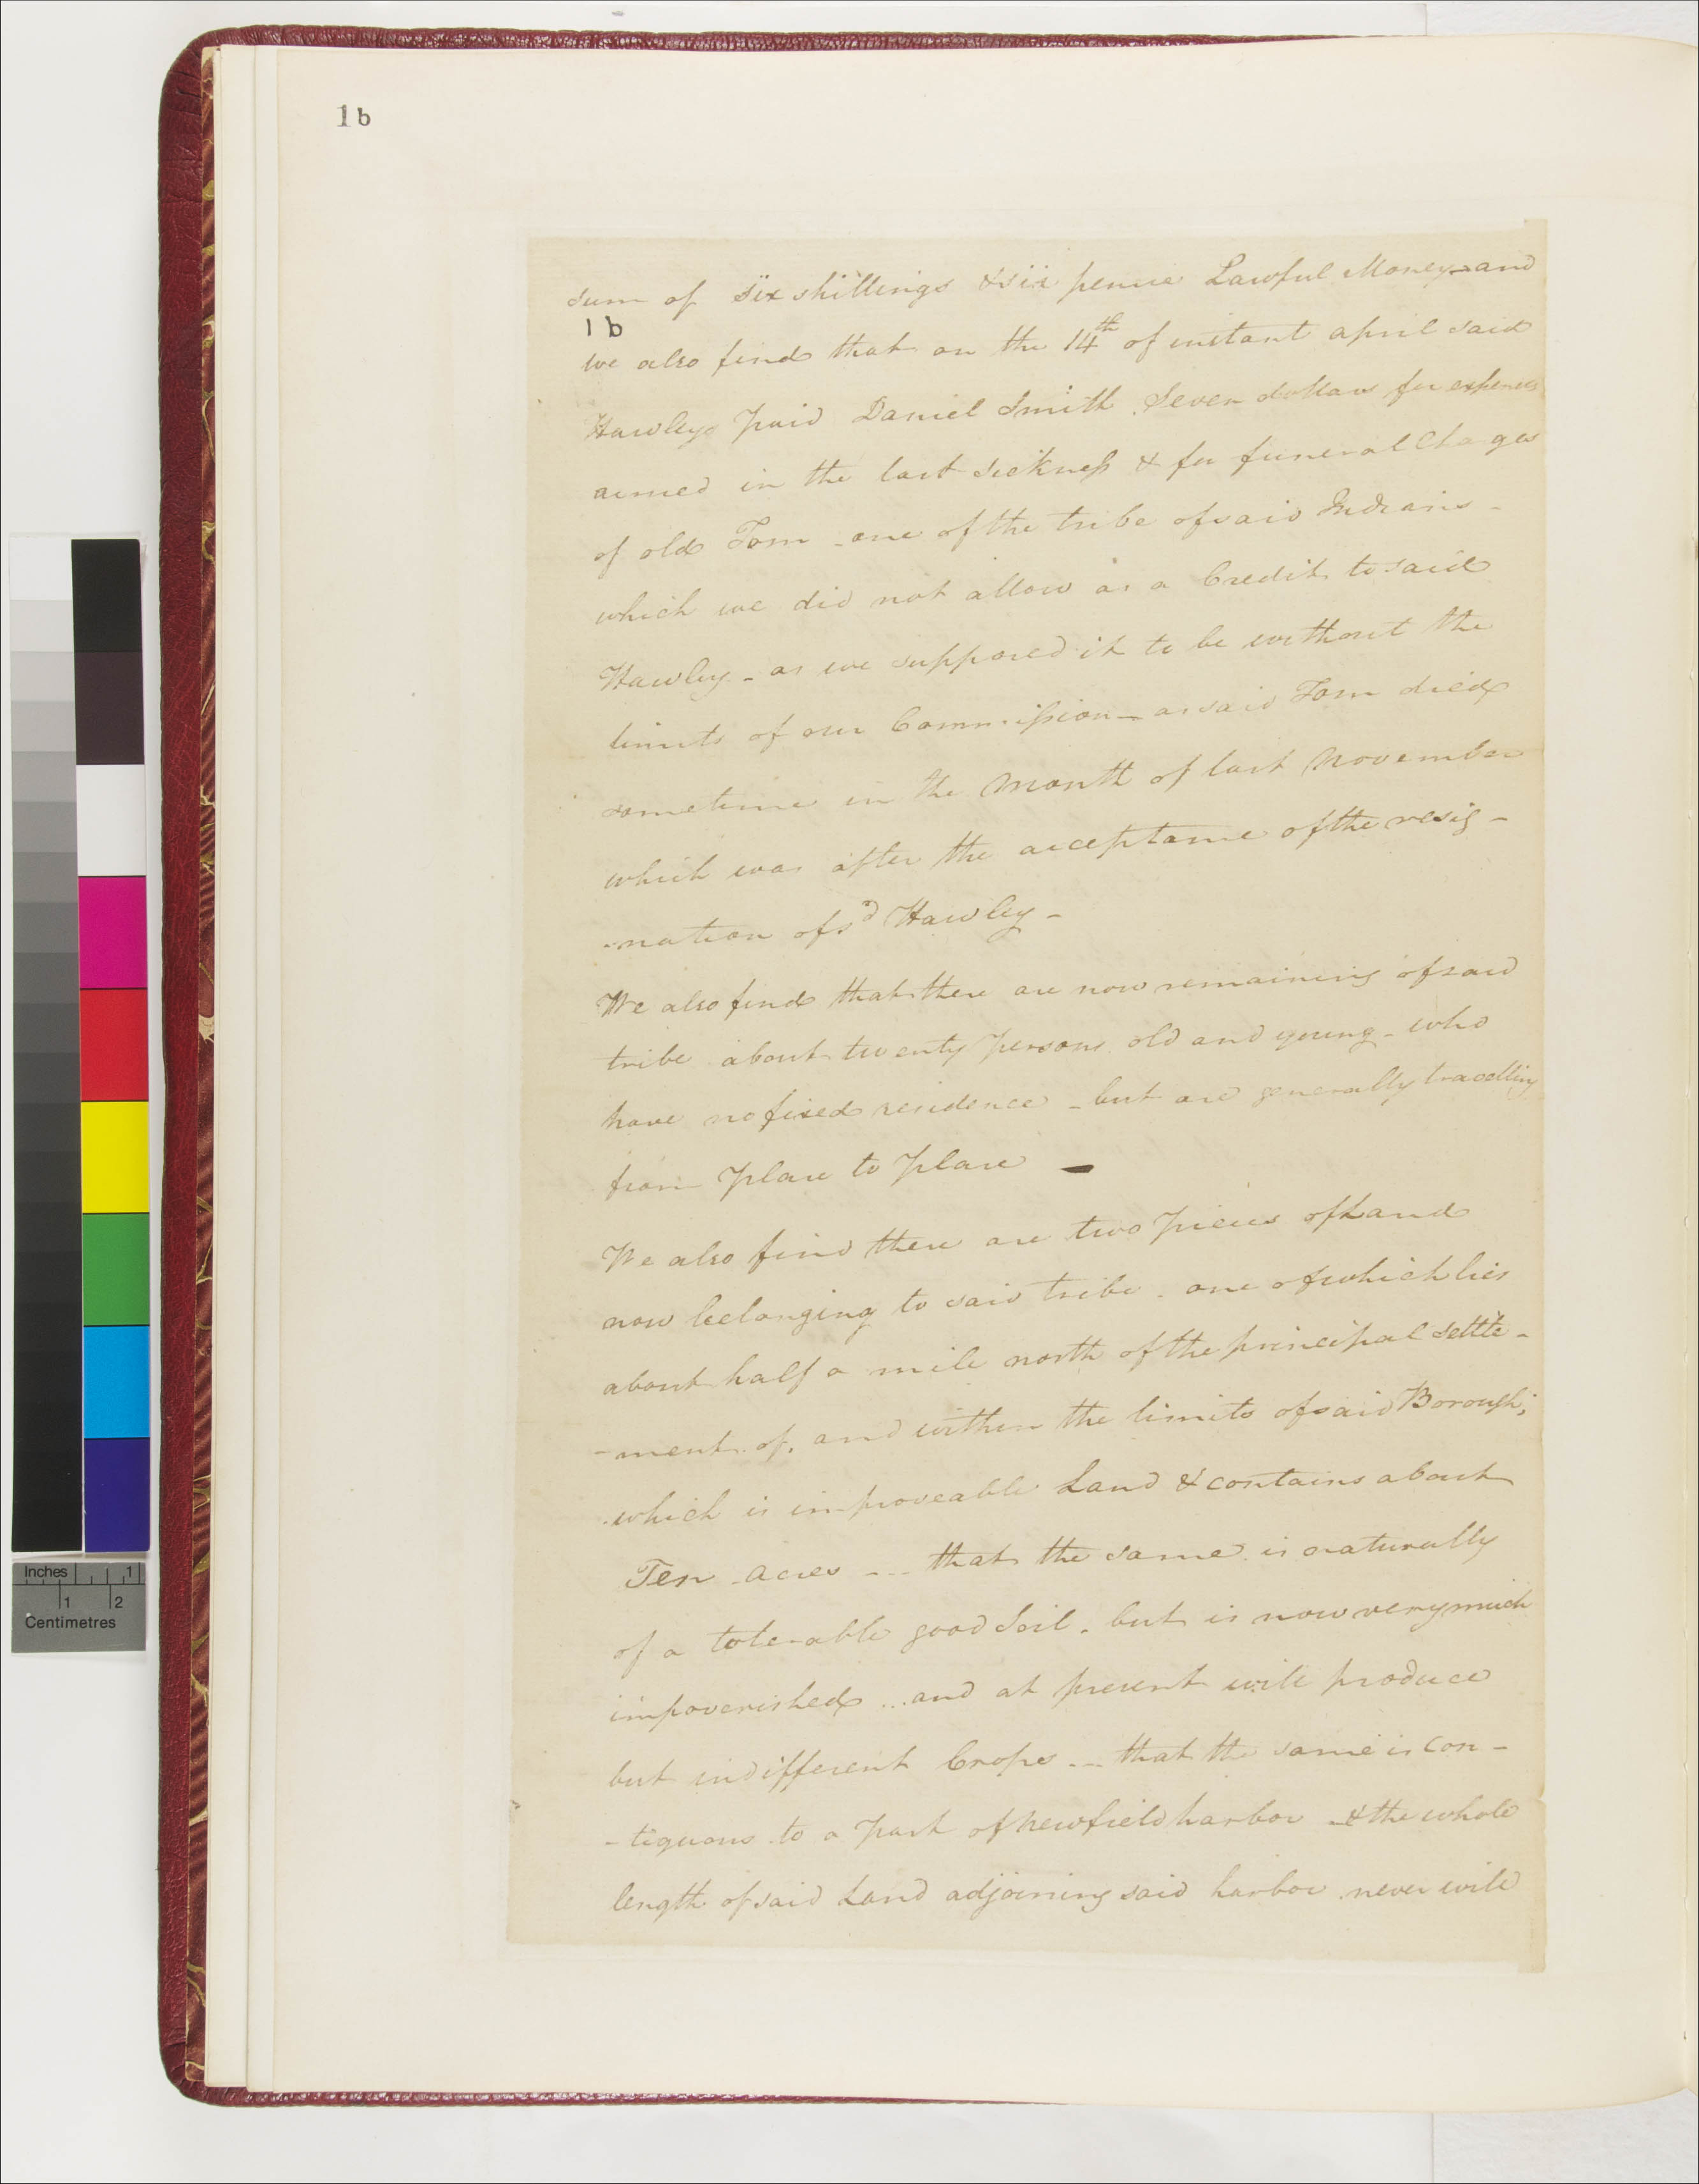 1b
sum of six shillings & six pence Lawful Money - and
1 b
we also find that on the 14th of instant april said
Hawley paid Daniel Smith Seven dollars for expences
arised in the last sickness & for funeral Charges
of old Tom - one of the tribe of said Indians -
which we did not allow as a Credit to said
Hawley - as we supposed it to be without the
limits of our Commission - as said Tom died
sometime in the Month of last November
which was after the acceptance of the resig -
- nation of sd Hawley -
We also find that there are now remaining of said
tribe about twenty persons old and young - who
have no fixed residence - but are generally travelling
from place to place -
We also find there are two pieces of Land
now belonging to said tribe - one of which lies
about half a mile north of the principal settle -
- ment of, and within the limits of said Borough;
which is improveable Land & contains about
Ten acres - - - that the same is naturally
of a tolerable good Soil - but is now very much
impoverished ... and at present will produce
but indifferent Crops - - - that the same is con -
- tiguous to a part of Newfield harbor - & the whole
length of said Land adjoining said harbor never will
Inches 1
1 2
Centimetres